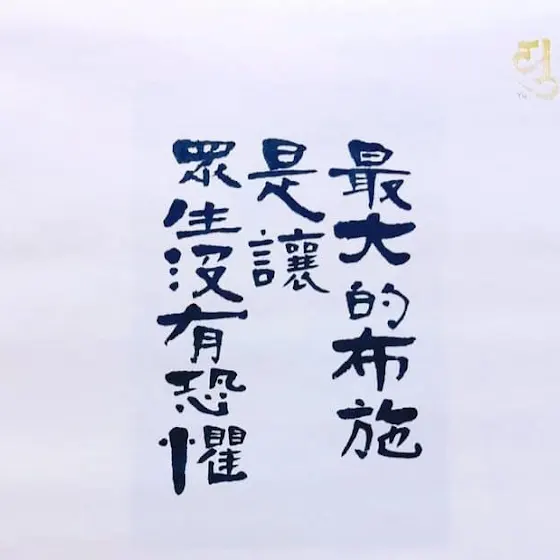 最大的布施
是讓
眾生沒有恐懼